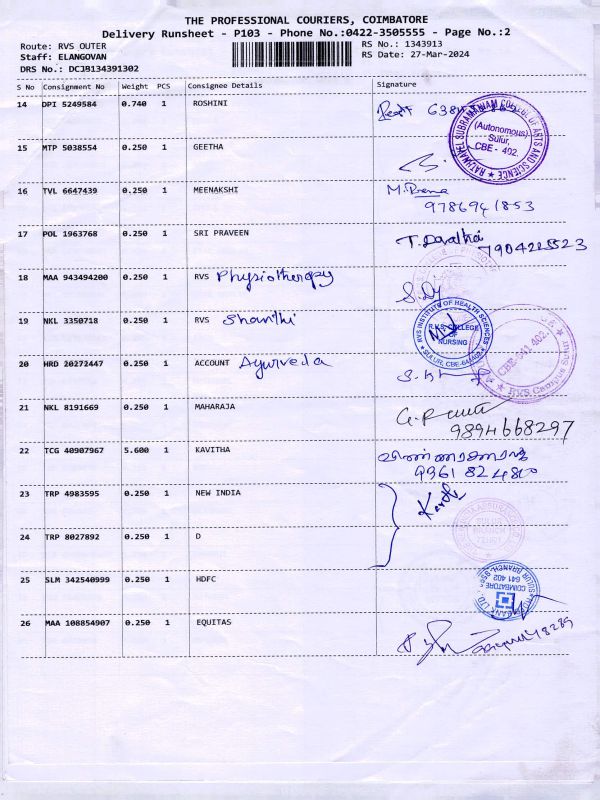 THE PROFESSIONAL COURIERS, COIMBATORE
Delivery Runsheet - P103 - Phone No.:0422-3505555 - Page No.:2
Route: RVS OUTER RS No.: 1343913
Staff: ELANGOVAN RS Date: 27-Mar-2024
DRS No.: DCJB134391302
S No Consignment No Weight PCS Consignee Details Signature
14 DPI 5249584 0.740 1 ROSHINI
RATHNAVEL SUBRAMANIAM COLLEGE OF ARTS AND SCIENCE
(Autonomous)
Sulur,
CBE - 402.
15 MTP 5038554 0.250 1 GEETHA
16 TVL 6647439 0.250 1 MEENAKSHI M.Prema
9786941853
17 POL 1963768 0.250 1 SRI PRAVEEN
18 MAA 943494200 0.250 1 RVS Physiotherapy
19 NKL 3350718 0.250 1 RVS Shanthi
RVS INSTITUTE OF HEALTH SCIENCES
R.K.S. COLLEGE
OF
NURSING
SULUR, CBE-641402
CBE-641 402.
RVS Campus
20 HRD 20272447 0.250 1 ACCOUNT Ayurveda
21 NKL 8191669 0.250 1 MAHARAJA
9894668297
22 TCG 40907967 5.600 1 KAVITHA
23 TRP 4983595 0.250 1 NEW INDIA
24 TRP 8027892 0.250 1 D
25 SLM 342540999 0.250 1 HDFC
COIMBATORE
641 402
26 MAA 108854907 0.250 1 EQUITAS